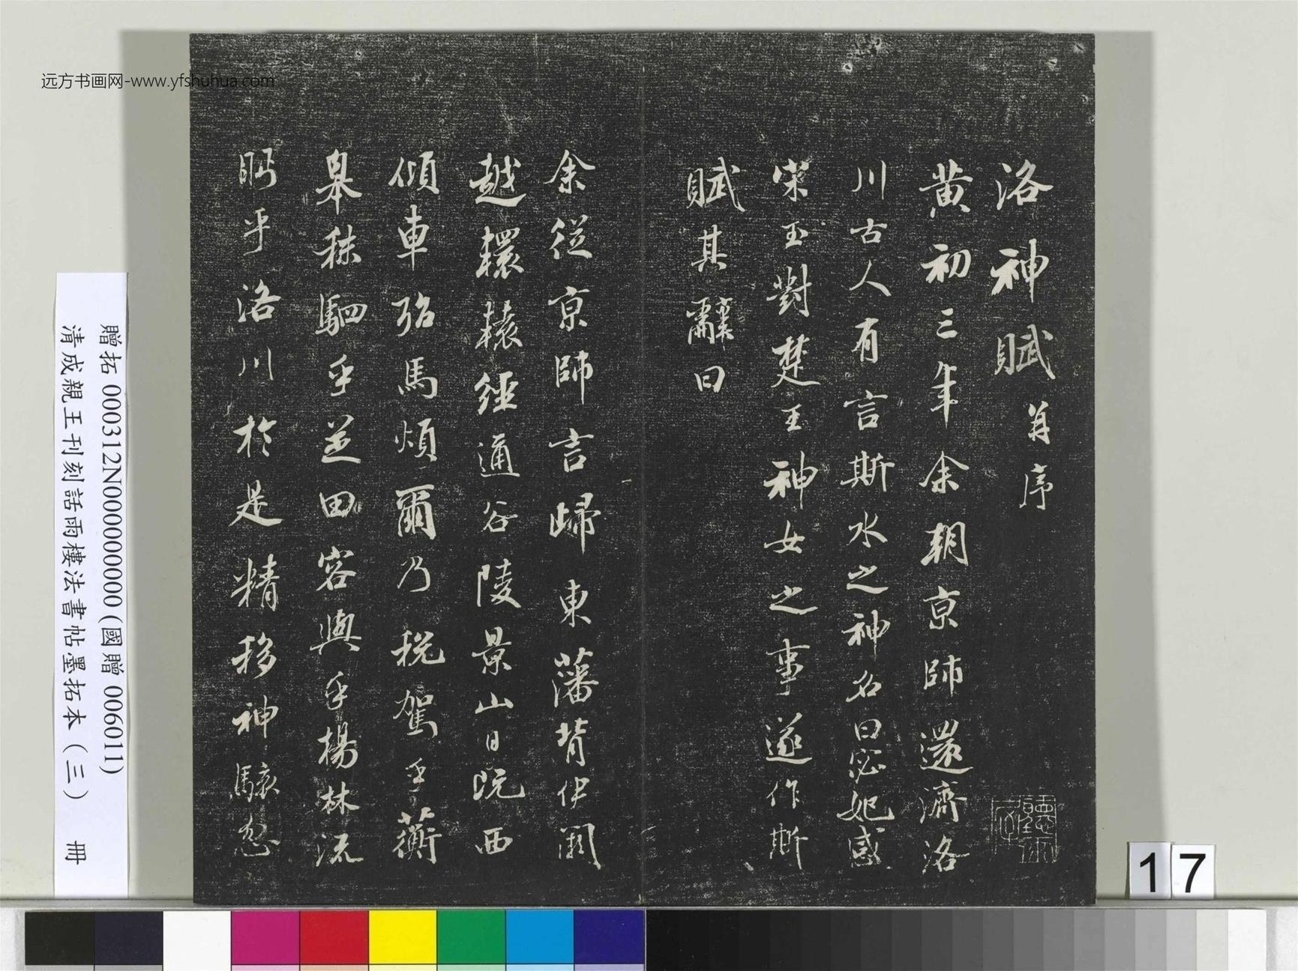 洛神賦并序
黄初三年余朝京師還濟洛
川古人有言斯水之神名曰宓妃感
宋玉對楚王神女之事遂作斯
賦其辭曰
余從京師言歸東藩背伊闕
越轘轅經通谷陵景山日既西
傾車殆馬煩爾乃稅駕乎蘅
皋秣駟乎芝田容與乎楊林流
眄乎洛川於是精移神駭忽
聽雨
贈拓 000312N000000000 (國贈 006011)
清成親王刊刻話雨樓法書帖墨拓本(三) 冊
远方书画网-www.yfshuhua.com
17